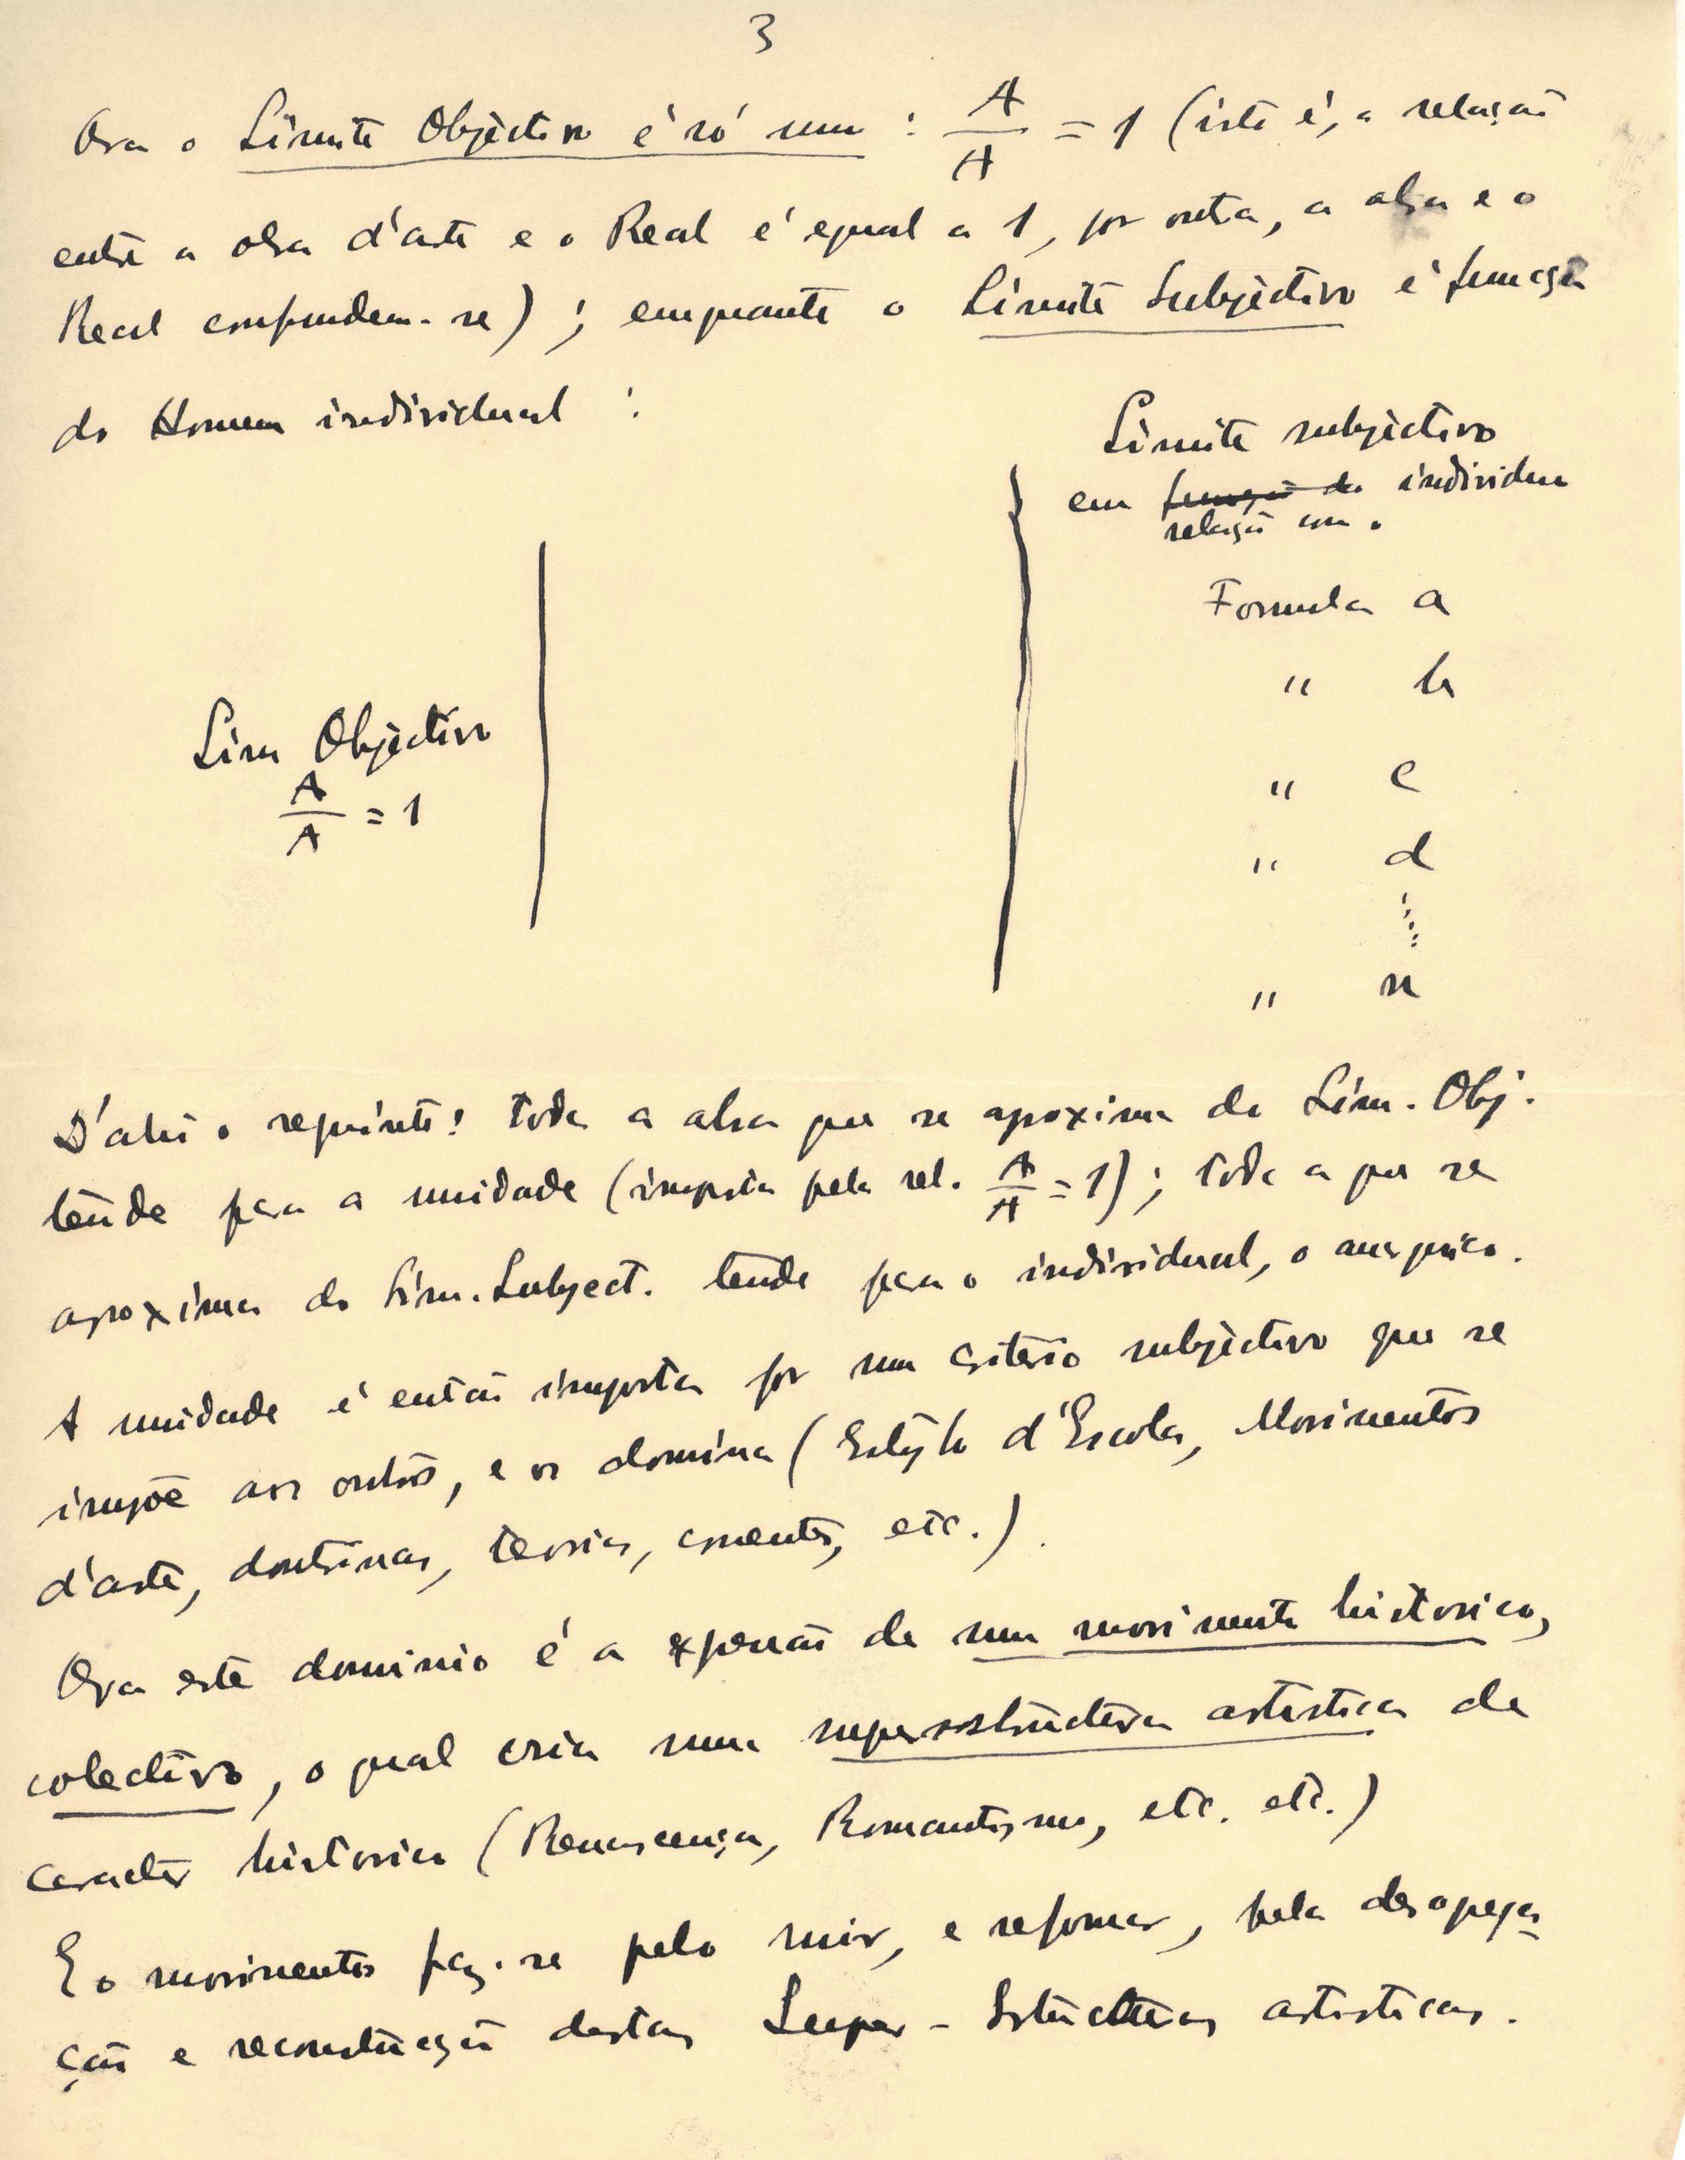 3
Ora o Limite Objectivo é só um : A/A = 1 (isto é, a relação
entre a obra d'arte e o Real é egual a 1, por outra, a obra e o
Real confundem-se) ; emquanto o Limite Subjectivo é função
do Homem individual :
Limite subjectivo
em função do individuo
relação com o
Formula a
" b
Lim Objectivo
A/A = 1
" c
" d
" n
D'ahi o seguinte: toda a obra que se aproxima do Lim. Obj.
tende para a unidade (imposta pela rel. A/A = 1) ; toda a que se
aproxima do Lim. Subject. tende para o individual, o anarquico.
A unidade é então imposta por um criterio subjectivo que se
impõe aos outros, e os domina (Estylo d'Escola, Movimentos
d'arte, doutrinas, teorias, correntes, etc.).
Ora este dominio é a expressão de um movimento historico,
colectivo, o qual cria uma superestructura artistica de
caracter historico (Renascença, Romantismo, etc. etc.)
E o movimento faz-se pelo unir, e reformar, pela desagrega-
ção e reconstrucção destas Super-Estructuras artisticas.